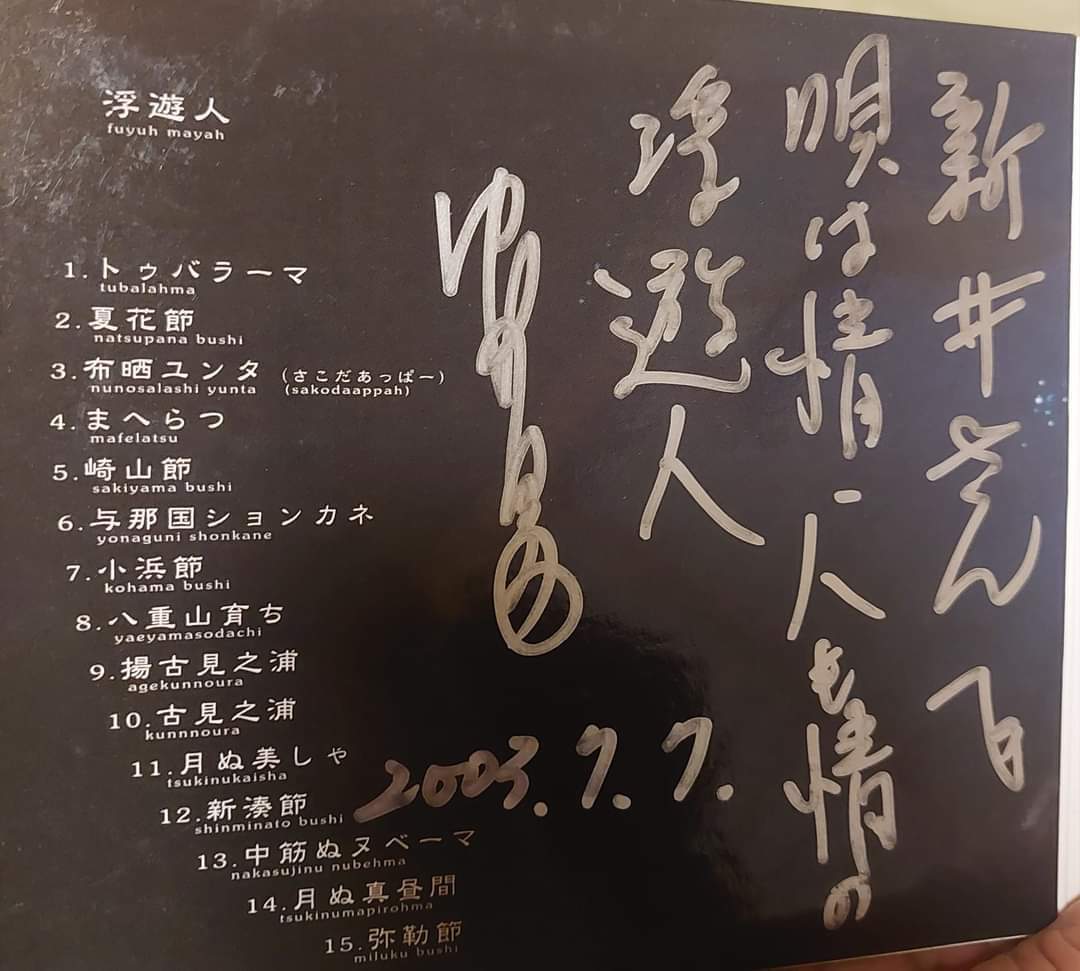 浮遊人
fuyuh mayah
1.トゥバラーマ
tubalahma
2.夏花節
natsupana bushi
3.布晒ユンタ (さこだあっぱー)
nunosalashi yunta (sakodaappah)
4.まへらつ
mafelatsu
5.崎山節
sakiyama bushi
6.与那国ションカネ
yonaguni shonkane
7.小浜節
kohama bushi
8.八重山育ち
yaeyamasodachi
9.揚古見之浦
agekunnoura
10.古見之浦
kunnnoura
11.月ぬ美しゃ
tsukinukaisha
12.新湊節
shinminato bushi
13.中筋ぬヌベーマ
nakasujinu nubehma
14.月ぬ真昼間
tsukinumapirohma
15.弥勒節
miluku bushi
新井さん
唄は情 人も情の
浮遊人
2003.7.7.